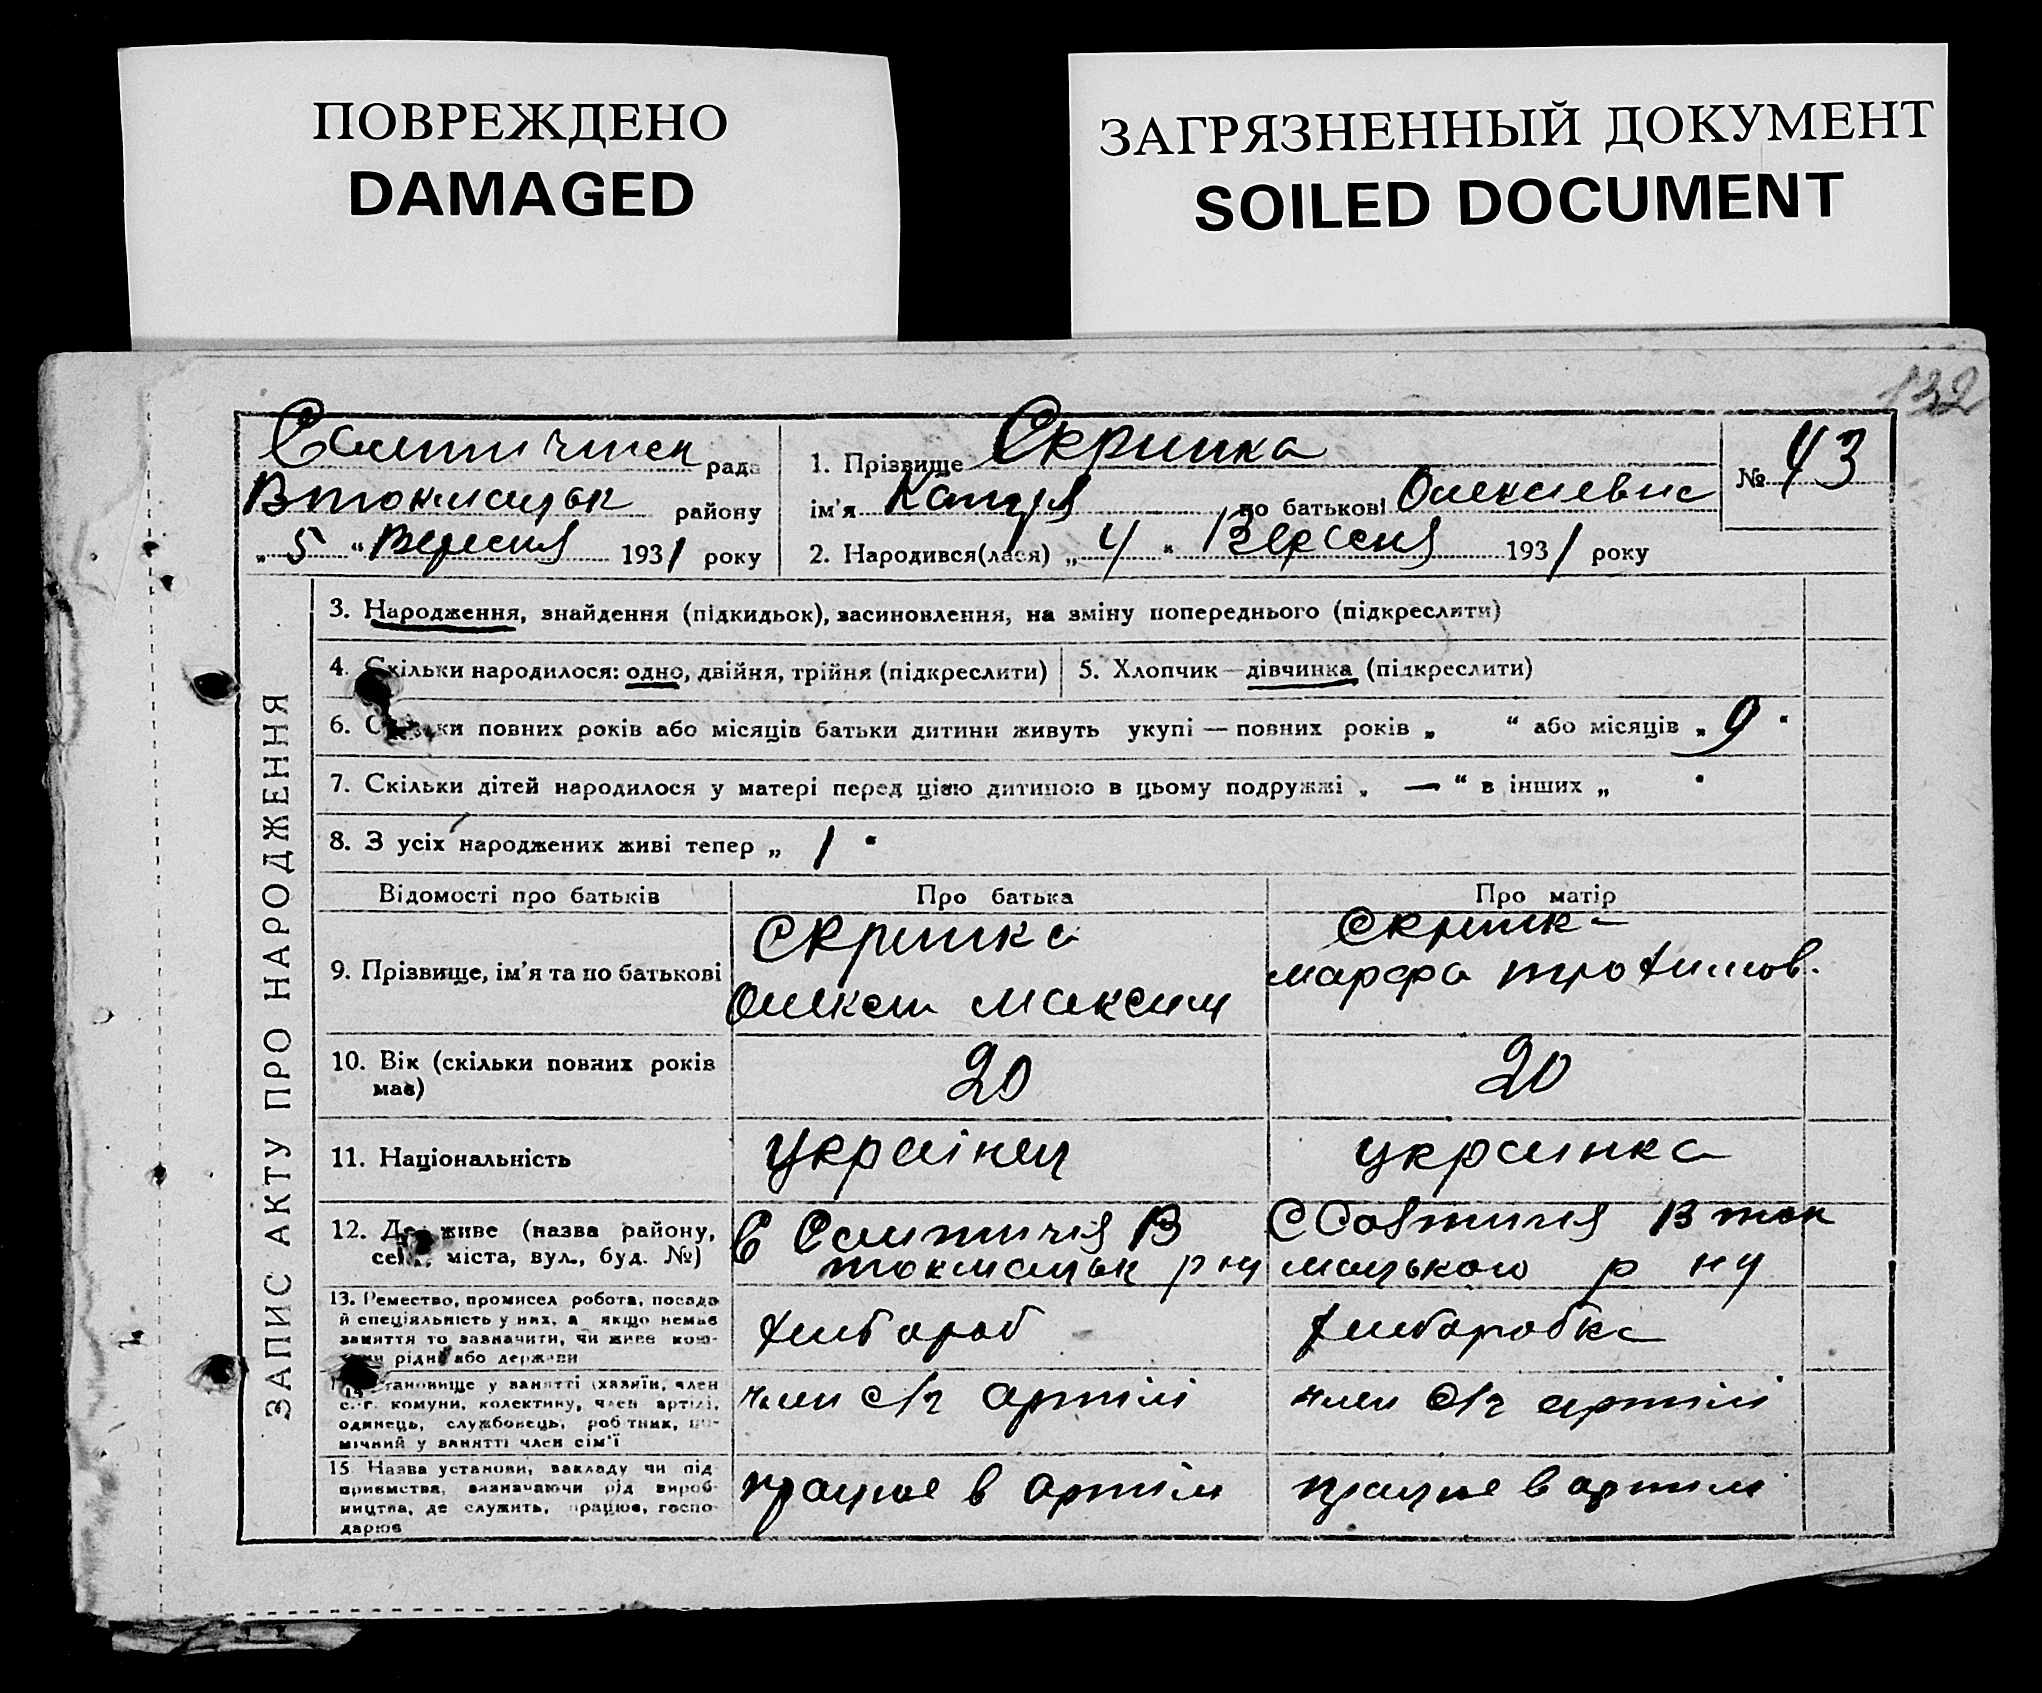 ПОВРЕЖДЕНО
DAMAGED
ЗАГРЯЗНЕННЫЙ ДОКУМЕНТ
SOILED DOCUMENT
132
Салтичиськ рада
Втокмацьк району
„ 5 “ Вересня 1931 року
1. Прізвище Скрипка
ім'я Катря по батькові Олексіевна
2. Народився(лася) „ 4 “ Вересня 1931 року
№ 43
ЗАПИС АКТУ ПРО НАРОДЖЕННЯ
3. Народження, знайдення (підкидьок), засиновлення, на зміну попереднього (підкреслити)
4. Скільки народилося: одно, двійня, трійня (підкреслити)
5. Хлопчик — дівчинка (підкреслити)
6. Скільки повних років або місяців батьки дитини живуть укупі — повних років „ “ або місяців „ 9 “
7. Скільки дітей народилося у матері перед цією дитиною в цьому подружжі „ — “ в інших „ “
8. З усіх народжених живі тепер „ 1 “
Відомості про батьків
Про батька
Про матір
9. Прізвище, ім'я та по батькові
Скрипка
Олексій Максим
Скрипка
Марфа Трохимов.
10. Вік (скільки повних років
має)
20
20
11. Національність
українец
украинка
12. Де живе (назва району,
села, міста, вул., буд. №)
С Салтичія В
токмацьк р ну
С Салтичія В ток
мацького р ну
13. Ремество, промисел робота, посада
й спеціяльність у них, а якщо немає
заняття то зазначити, чи живе кош-
тами рідні або держави
хлібороб
хлиборобка
14. Становище у занятті (хазяїн, член
с.-г. комуни, колективу, член артілі,
одинець, службовець, робітник, по-
мічний у занятті член сім'ї
член с/г артілі
член с/г артілі
15. Назва установи, закладу чи під-
приємства, зазначаючи рід вироб-
ництва, де служить, працює, госпо-
дарює
працює в артілі
працює в артілі